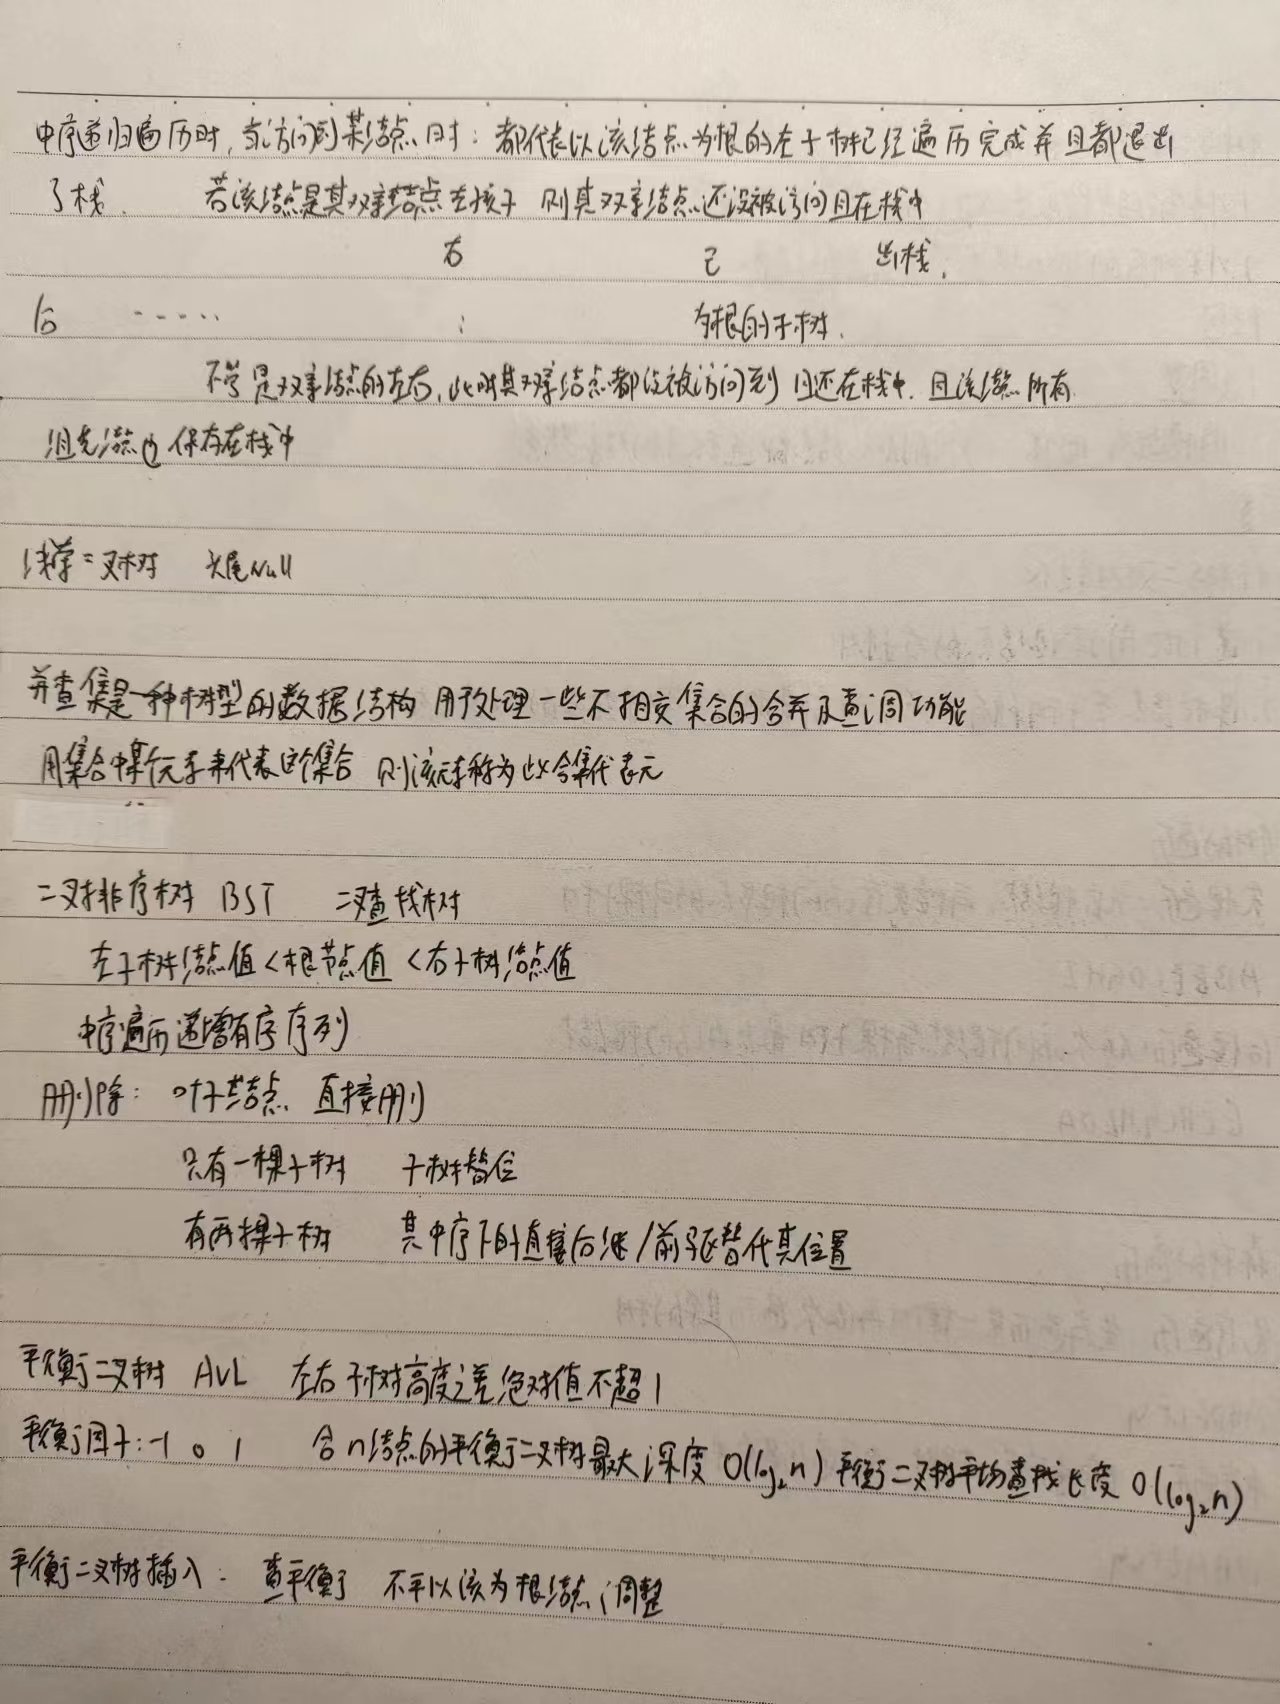 中序递归遍历时，当访问到某结点时：都代表以该结点为根的左子树已经遍历完成并且都退出
了栈． 若该结点是其双亲结点左孩子 则其双亲结点还没被访问且在栈中
右 已 出栈．
后 ...... : 为根的子树．
不管是双亲结点的左右，此时其双亲结点都没被访问到 且还在栈中．且该结点所有
祖先结点也保存在栈中
线索二叉树 头尾Null
并查集是一种树型的数据结构 用于处理一些不相交集合的合并及查询功能
用集合中某个元素来代表这个集合 则该元素称为此合集代表元
二叉排序树 BST 二叉查找树
左子树结点值<根节点值<右子树结点值
中序遍历递增有序序列
删除： 叶子结点 直接删
只有一棵子树 子树替位
有两棵子树 其中序下的直接后继/前驱替代其位置
平衡二叉树 AVL 左右子树高度之差绝对值不超1
平衡因子：-1 0 1 含n结点的平衡二叉树最大深度 O(log₂n) 平衡二叉树平均查找长度 O(log₂n)
平衡二叉树插入： 查平衡 不平以该为根结点调整